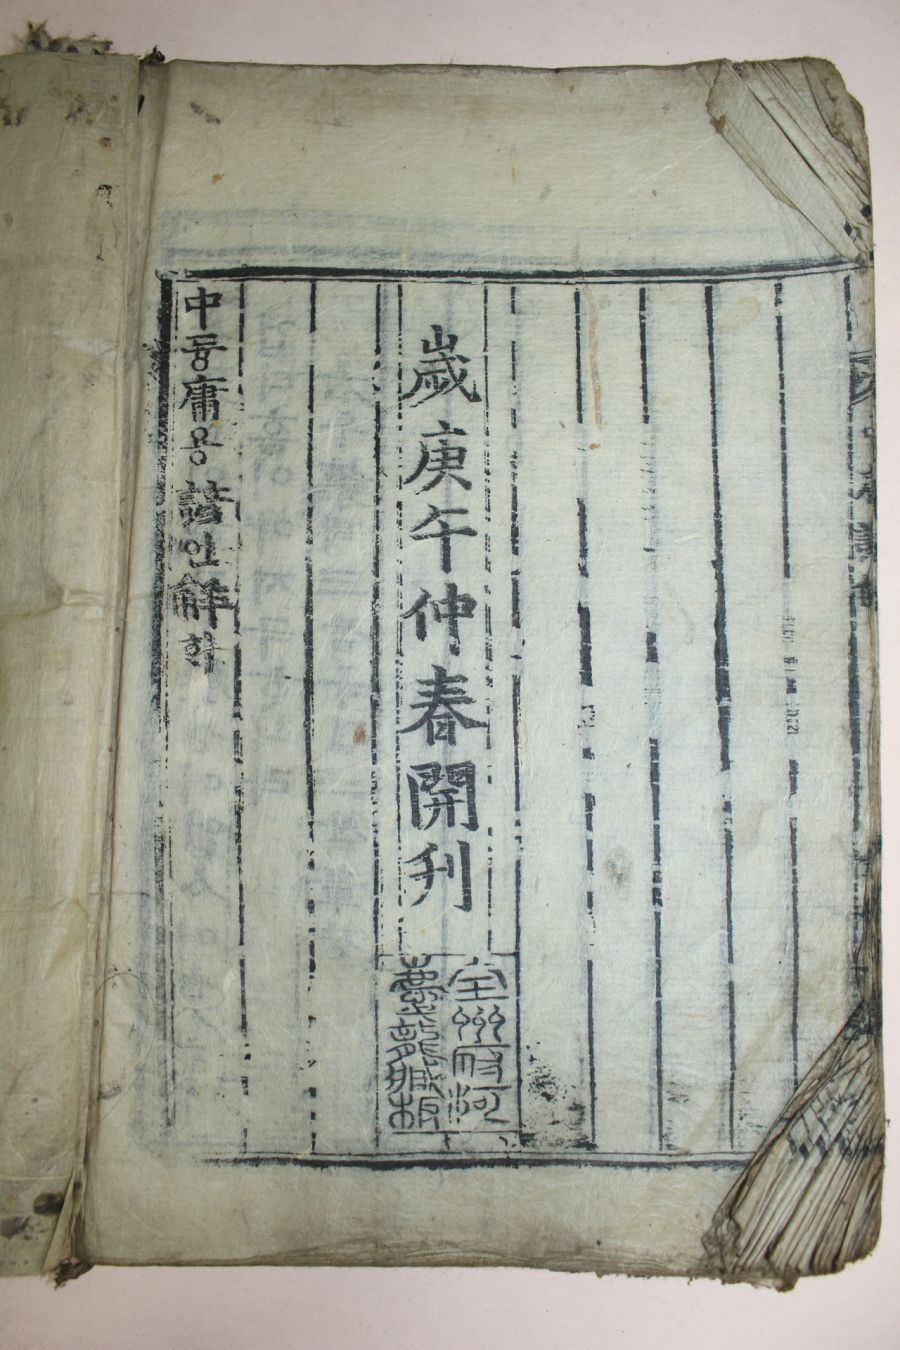 歲庚午仲春開刊
全州府河
慶龍藏板
中듕庸용諺언解ᄒᆡ